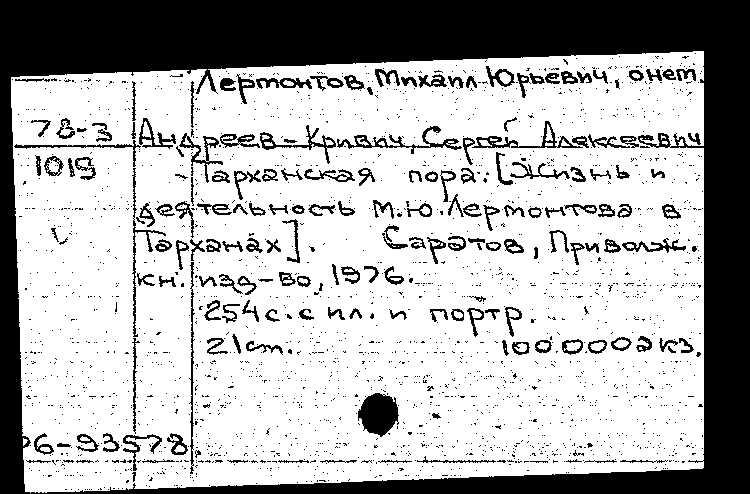 Лермонтов, Михаил Юрьевич, о нем.
78-3 Андреев-Кривич, Сергей Алексеевич
1019 - Тарханская пора. [Жизнь и
деятельность М.Ю.Лермонтова в
Тарханах]. Саратов, Приволж.
кн. изд-во, 1976.
254 с. с ил. и портр.
21 см. 100.000 экз.
76-93578